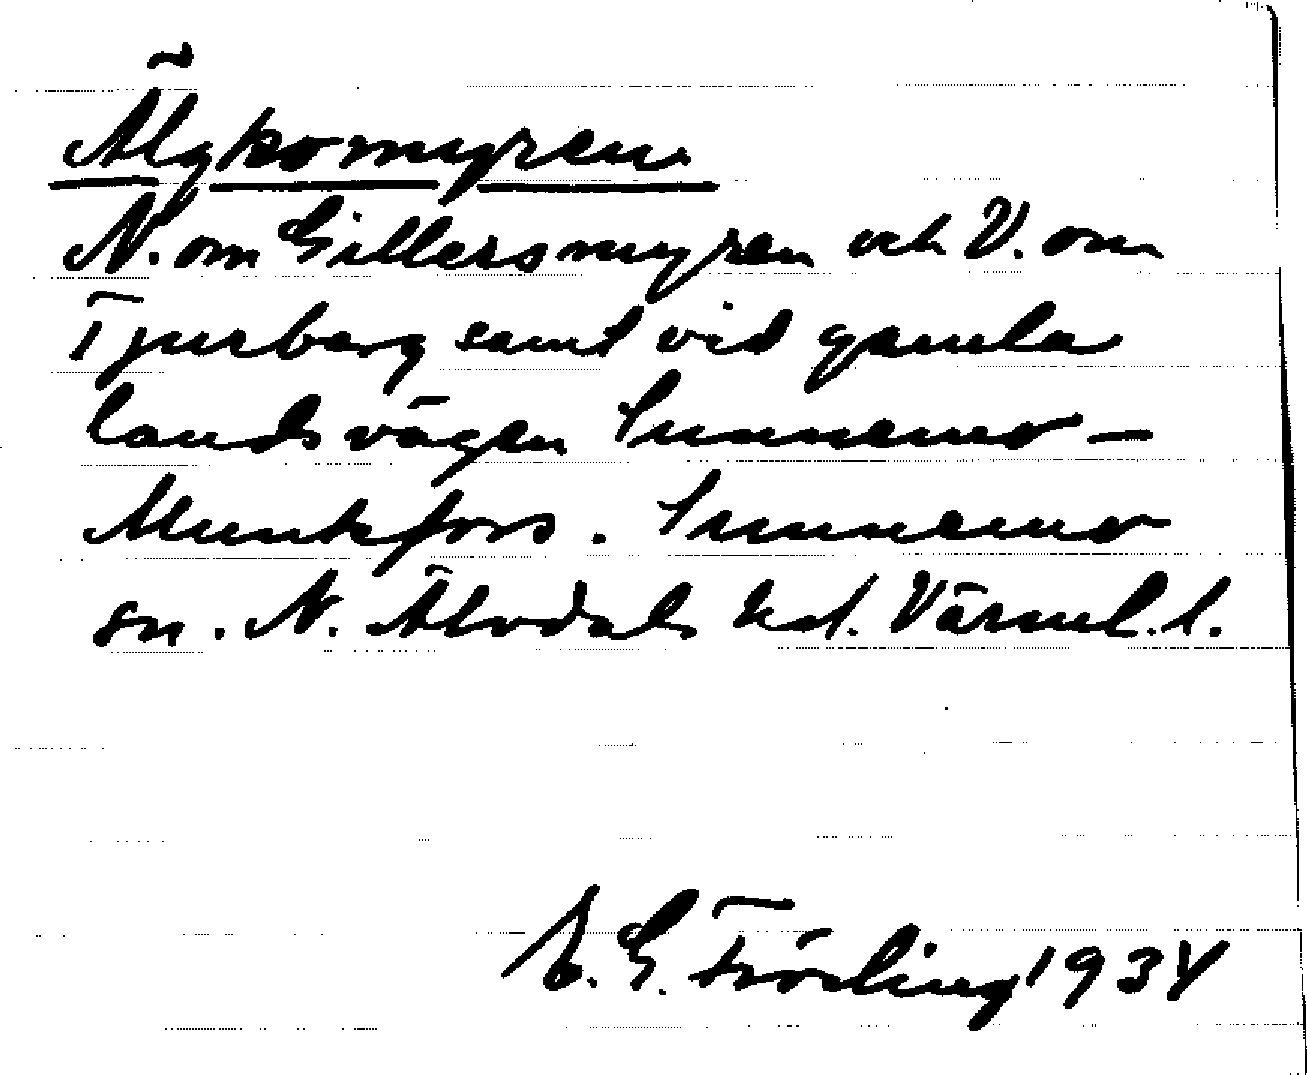 Älgkomyren
N. om Gillersmyren och V. om
Tjurberg samt vid gamla
landsvägen Sunnemo –
Munkfors. Sunnemo
sn. N. Älvdals hd. Värml. l.
G. Fröding 1934